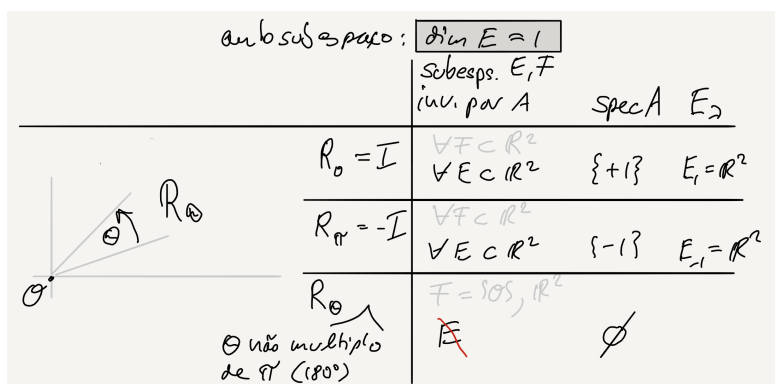 autosubespaço: dim E = 1
subesps. E, F
inv. por A spec A E_λ
R_0 = I ∀F ⊂ ℝ² ∀E ⊂ ℝ² {+1} E_1 = ℝ²
R_π = -I ∀F ⊂ ℝ² ∀E ⊂ ℝ² {-1} E_-1 = ℝ²
R_θ F = {0}, ℝ²
θ não multiplo E ∅
de π (180º)
θ R_θ
O